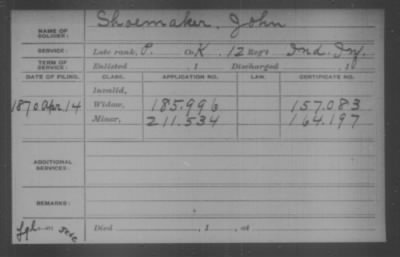 NAME OF SOLDIER: Shoemaker, John
SERVICE: Late rank, P. Co. K, 12 Reg't Ind. Inf.
TERM OF SERVICE: Enlisted , 1 Discharged , 1
DATE OF FILING. CLASS. APPLICATION NO. LAW. CERTIFICATE NO.
Invalid,
1870 Apr. 14 Widow, 185.996 157.083
Minor, 211.534 164.197
ADDITIONAL SERVICES:
REMARKS:
Died , 1 , at